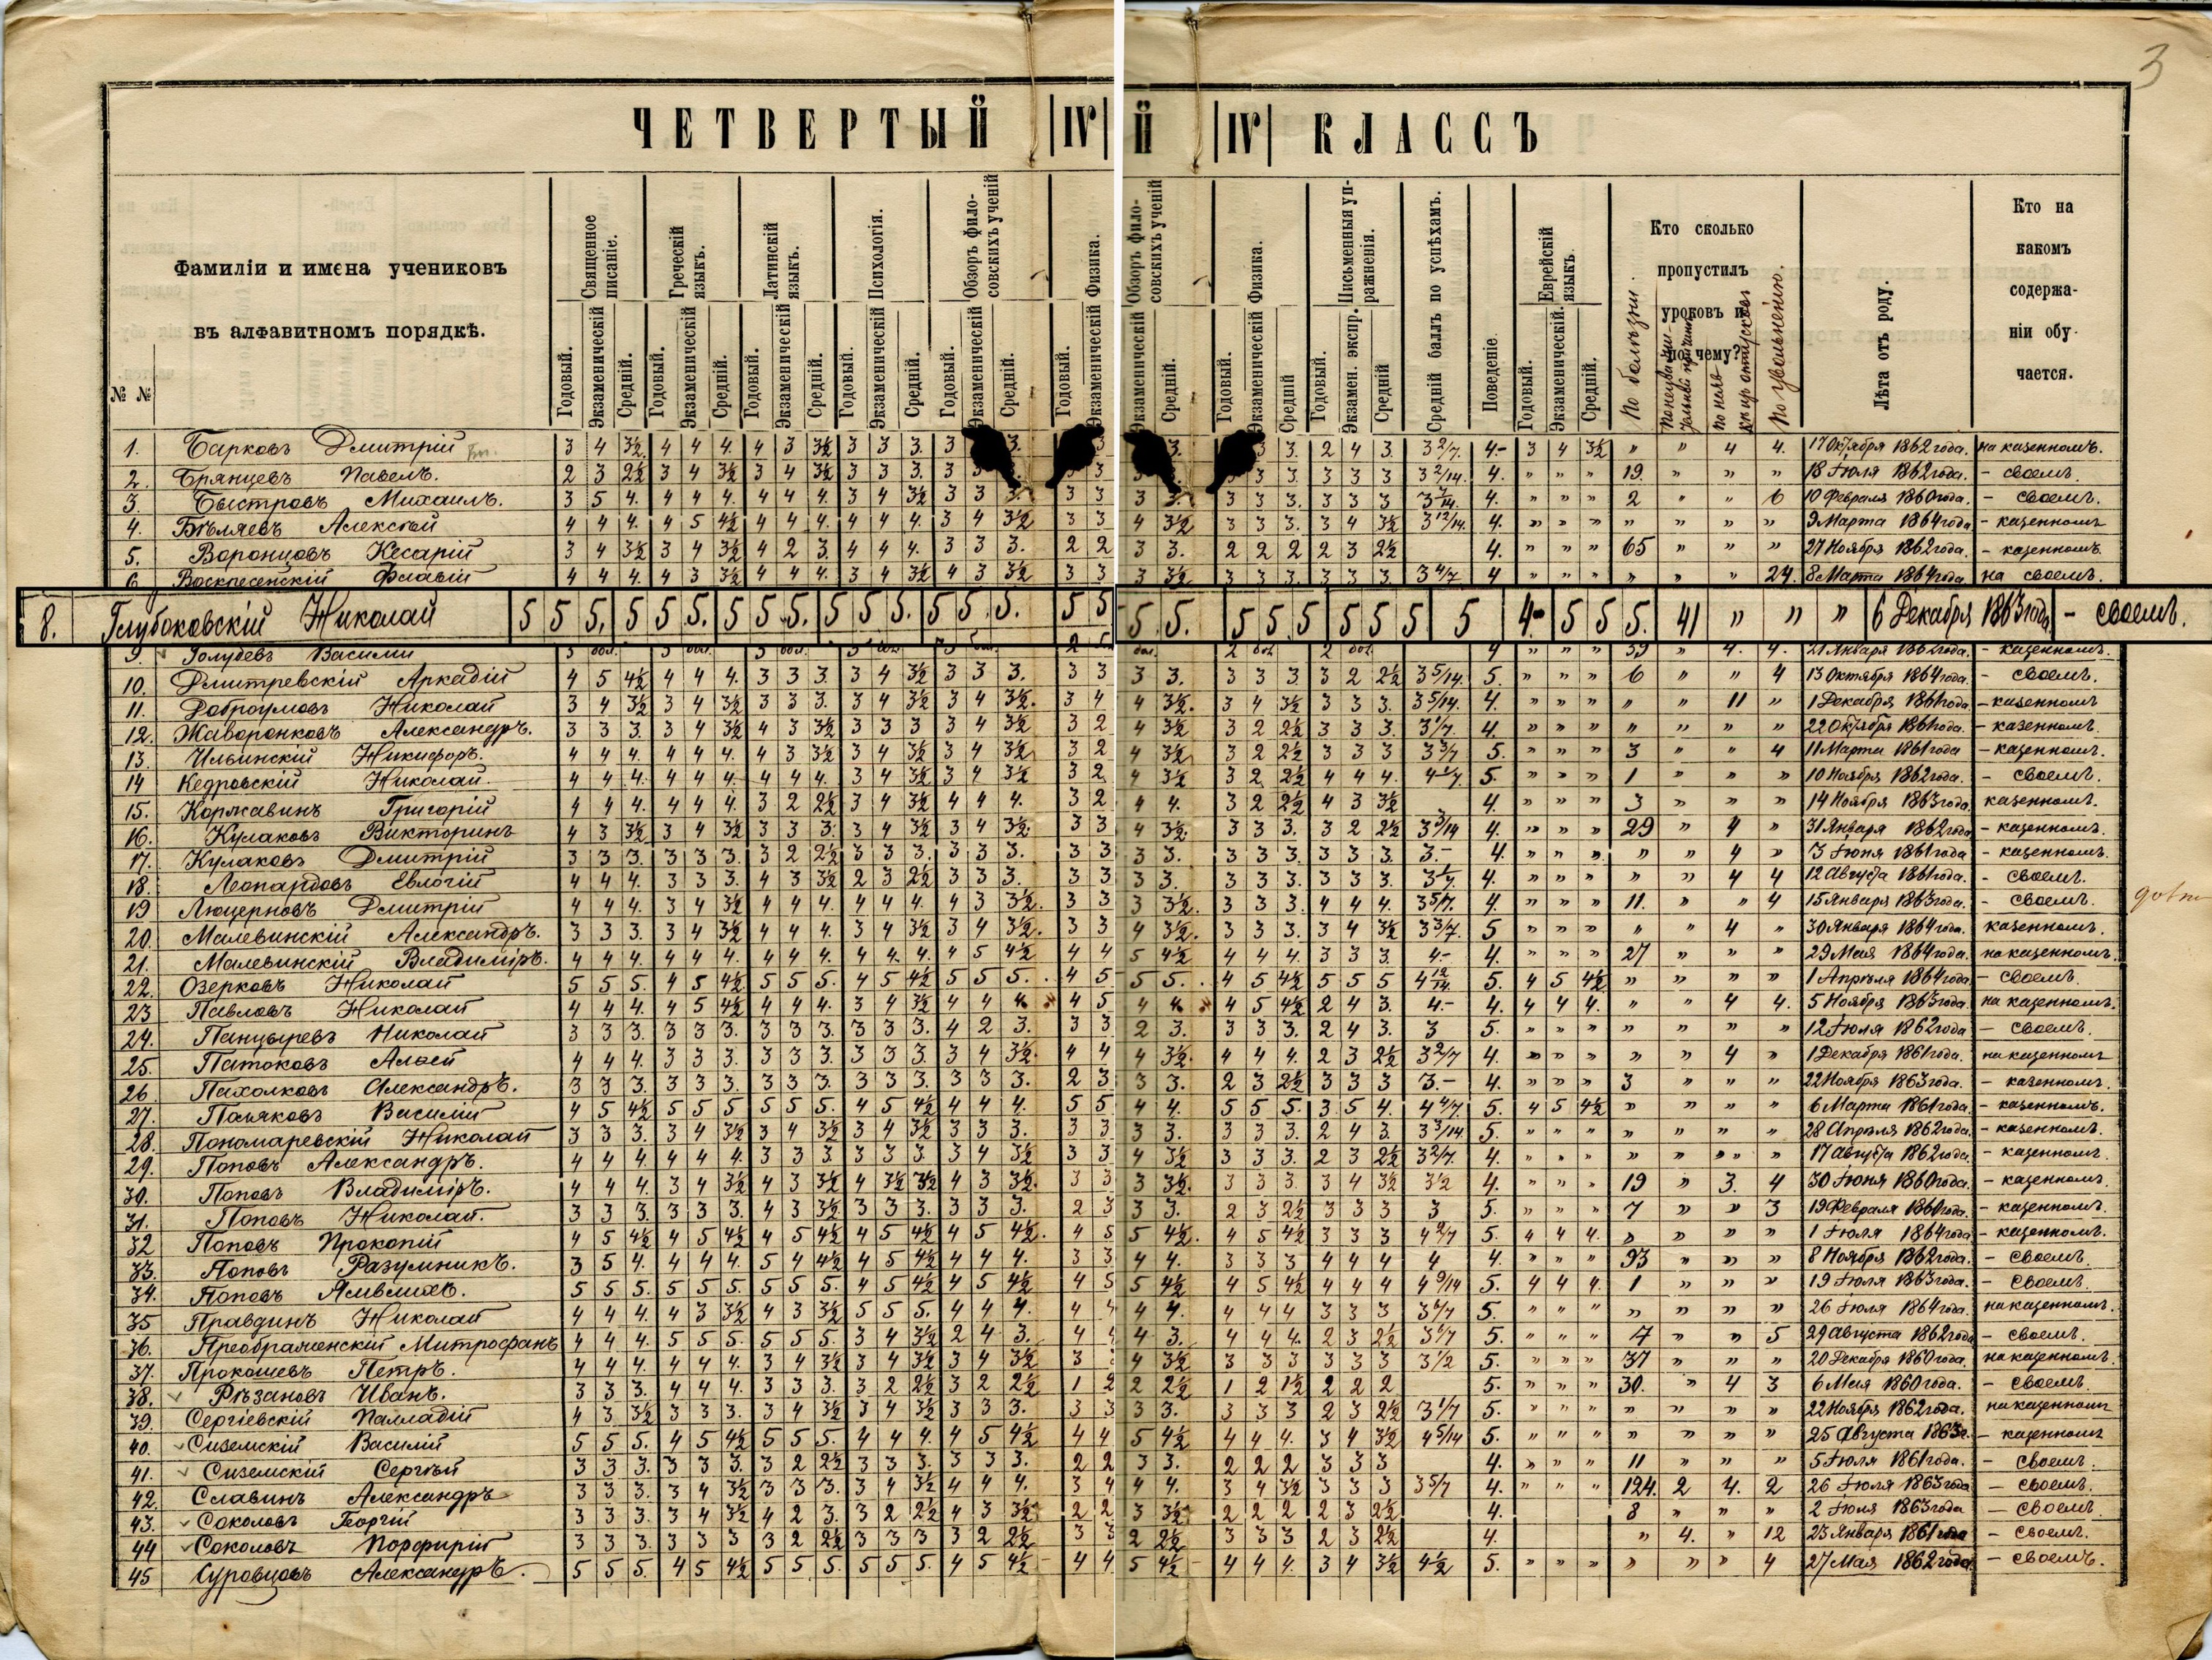 3
ЧЕТВЕРТЫЙ IV КЛАССЪ
№ №
Фамиліи и имена учениковъ
въ алфавитномъ порядкѣ.
Священное писаніе.
Греческій языкъ.
Латинскій языкъ.
Психологія.
Обзоръ фило-
совскихъ ученій
Физика.
Письменныя уп-
ражненія.
Средній баллъ по успѣхамъ.
Поведеніе.
Еврейскій языкъ.
Годовый. Экзаменическій Средній.
Кто сколько
пропустилъ
уроковъ и
почему?
По болѣзни.
По увольненію.
Лѣта отъ роду.
Кто на
какомъ
содержа-
ніи обу-
чается.
1. Барковъ Дмитрій 3 4 3½ 4 4 4. 4 3 3½ 3 3 3. 3 3. 2 4 3. 3 2/7. 4- 3 4 3½ " " 4 4. 17 Октября 1862 года. на казенномъ.
2. Брянцевъ Павелъ. 2 3 2½ 3 4 3½ 3 4 3½ 3 3 3. 3 3 3. 3 3 3 3 2/14. 4. " " " 19. " " " 18 Іюля 1862 года. - своемъ.
3. Быстровъ Михаилъ. 3 5 4. 4 4 4. 4 4 4. 3 4 3½ 3 3 3. 3 3 3. 3 3 3 4. " " " 2 " " 6 10 Февраля 1860 года. - своемъ.
4. Бѣляевъ Алексѣй 4 4 4. 4 5 4½ 4 4 4. 4 4 4. 3 4 3½ 3 3 3. 3 4 3½ 3 12/14. 4. " " " " " " " 9 Марта 1864 года - казенномъ
5. Воронцовъ Кесарій 3 4 3½ 3 4 3½ 4 2 3. 4 4 4. 3 3 3. 2 2 2 2 3 2½ 4. " " " 65 " " " 27 Ноября 1862 года. - казенномъ.
6 Воскресенскій Флавій 4 4 4. 4 3 3½ 4 4 4. 3 4 3½ 4 3 3½ 3 3 3. 3 3 3. 3 4/7 4 " " " " " " 24. 8 Марта 1864 года. на своемъ.
8. Глубоковскій Николай 5 5 5. 5 5 5. 5 5 5. 5 5 5. 5 5. 5. 5 5 5 5 5 5 5 4- 5 5 5. 41 " " " 6 Декабря 1863 года - своемъ.
9. Голубевъ Василій 4 " " " 39 " 4. 4. 21 Января 1862 года. - казенномъ.
10. Дмитревскій Аркадій 4 5 4½ 4 4 4. 3 3 3. 3 4 3½ 3 3 3. 3 3 3. 3 2 2½ 3 5/14. 5. " " " 6 " " 4 13 Октября 1864 года. - своемъ.
11. Доброумовъ Николай 3 4 3½ 3 4 3½ 3 3 3. 3 4 3½ 3 4 3½. 3 4 3½ 3 3 3. 3 5/14. 4. " " " " " 11 " 1 Декабря 1861 года. - казенномъ
12. Жаворонковъ Александръ. 3 3 3. 3 4 3½ 4 3 3½ 3 3 3 3 4 3½ 3 2 2½ 3 3 3. 3 1/7. 4. " " " " " " " 22 Октября 1861 года. - казенномъ.
13. Ильинскій Никифоръ. 4 4 4. 4 4 4. 4 3 3½ 3 4 3½ 3 4 3½ 3 2 2½ 3 3 3 3 3/7 5. " " " 3 " " 4 11 Марта 1861 года - казенномъ.
14 Кедровскій Николай. 4 4 4. 4 4 4. 4 4 4. 3 4 3½ 3 4 3½ 3 2 2½ 4 4 4. 4 1/7. 5. " " " 1 " " " 10 Ноября 1862 года. - своемъ.
15. Коржавинъ Григорій 4 4 4. 4 4 4. 3 2 2½ 3 4 3½ 4 4 4. 3 2 2½ 4 3 3½ 4. " " " 3 " " " 14 Ноября 1863 года. казенномъ.
16. Кулаковъ Викторинъ 4 3 3½ 3 4 3½ 3 3 3. 3 4 3½ 3 4 3½. 3 3 3. 3 2 2½ 3 3/14 4. " " " 29 " 4 " 31 Января 1862 года - казенномъ.
17. Кулаковъ Дмитрій 3 3 3. 3 3 3. 3 2 2½ 3 3 3. 3 3 3. 3 3 3. 3 3 3. 3.- 4. " " " " " 4 " 3 Іюня 1861 года - казенномъ.
18. Леопардовъ Евлогій 4 4 4. 3 3 3. 4 3 3½ 2 3 2½ 3 3 3. 3 3 3. 3 3 3. 3 1/7. 4. " " " " " 4 4 12 Августа 1861 года. - своемъ.
19 Люцерновъ Дмитрій 4 4 4. 3 4 3½ 4 4 4. 4 4 4. 4 3 3½. 3 3 3. 4 4 4. 3 5/7. 4. " " " 11. " " 4 15 Января 1863 года. - своемъ.
20. Малевинскій Александръ. 3 3 3. 3 4 3½ 4 4 4. 3 4 3½ 3 4 3½. 3 3 3. 3 4 3½ 3 3/7. 5 " " " " " 4 " 30 Января 1864 года. казенномъ.
21. Малевинскій Владиміръ. 4 4 4. 4 4 4. 4 4 4. 4 4 4. 4 5 4½ 4 4 4. 3 3 3. 4- 4. " " " 27 " " " 29 Мая 1864 года. на казенномъ.
22. Озерковъ Николай 5 5 5. 4 5 4½ 5 5 5. 4 5 4½ 5 5 5. 4 5 4½ 5 5 5 4 12/14. 5. 4 5 4½ " " " " 1 Апрѣля 1864 года - своемъ.
23 Павловъ Николай 4 4 4. 4 5 4½ 4 4 4. 3 4 3½ 4 4 4. 4 5 4½ 2 4 3. 4- 4. 4 4 4. " " 4 4. 5 Ноября 1863 года. на казенномъ.
24. Панцыревъ Николай 3 3 3. 3 3 3. 3 3 3. 3 3 3. 4 2 3. 3 3 3. 2 4 3. 3 5. " " " " " " " 12 Іюля 1862 года - своемъ.
25. Патоковъ Алвей 4 4 4. 3 3 3. 3 3 3. 3 3 3. 3 4 3½. 4 4 4. 2 3 2½ 3 2/7 4. " " " " " 4 " 1 Декабря 1861 года. на казенномъ
26 Пахолковъ Александръ. 3 3 3. 3 3 3. 3 3 3. 3 3 3. 3 3 3. 2 3 2½ 3 3 3 3.- 4. " " " 3 " " " 22 Ноября 1863 года. - казенномъ.
27. Поляковъ Василій 4 5 4½ 5 5 5 5 5 5. 4 5 4½ 4 4 4. 5 5 5. 3 5 4. 4 4/7. 5. 4 5 4½ " " " " 6 Марта 1861 года. - казенномъ.
28. Пономаревскій Николай 3 3 3. 3 4 3½ 3 4 3½ 3 4 3½ 3 3 3. 3 3 3. 2 4 3. 3 3/14. 5. " " " " " " " 28 Апрѣля 1862 года. - казенномъ.
29. Поповъ Александръ. 4 4 4. 4 4 4. 3 3 3 3 3 3. 3 4 3½ 3 3 3. 2 3 2½ 3 2/7. 4. " " " " " " " 17 Августа 1862 года. - казенномъ.
30. Поповъ Владиміръ. 4 4 4. 3 4 3½ 4 3 3½ 4 3½ 3½ 4 3 3½. 3 3 3. 3 4 3½ 3½ 4. " " " 19 " 3. 4 30 Іюня 1860 года. - казенномъ.
31. Поповъ Николай. 3 3 3. 3 3 3. 4 3 3½ 3 3 3. 3 3 3. 2 3 2½ 3 3 3 3 5. " " " 7 " " 3 19 Февраля 1860 года. - казенномъ.
32 Поповъ Прокопій 4 5 4½ 4 5 4½ 4 5 4½ 4 5 4½ 4 5 4½. 4 5 4½ 3 3 3 4 2/7 5. 4 4 4. " " " " 1 Іюля 1864 года - казенномъ.
33. Поповъ Разумникъ. 3 5 4. 4 4 4. 5 4 4½ 4 5 4½ 4 4 4. 3 3 3 4 4 4 4 4. " " " 93 " " " 8 Ноября 1862 года. - своемъ.
34. Поповъ Ямвлихъ. 5 5 5. 5 5 5. 5 5 5. 4 5 4½ 4 5 4½ 4 5 4½ 4 4 4 4 9/14 5. 4 4 4. 1 " " " 19 Іюля 1863 года. - своемъ.
35 Правдинъ Николай 4 4 4. 4 3 3½ 4 3 3½ 5 5 5. 4 4 4. 4 4 4 3 3 3 3 6/7 5. " " " " " " " 26 Іюля 1864 года. на казенномъ.
36. Преображенскій Митрофанъ 4 4 4. 5 5 5. 5 5 5. 3 4 3½ 2 4 3. 4 4 4. 2 3 2½ 3 6/7 5. " " " 7 " " 5 29 Августа 1862 года - своемъ.
37. Прокошевъ Петръ. 4 4 4. 4 4 4. 3 4 3½ 3 4 3½ 3 4 3½ 3 3 3 3 3 3 3 1/2 5. " " " 37 " " " 20 Декабря 1860 года. на казенномъ.
38. Рѣзановъ Иванъ. 3 3 3. 4 4 4. 3 3 3. 3 2 2½ 3 2 2½ 1 2 1½ 2 2 2 5. " " " 30. " 4 3 6 Мая 1860 года. - своемъ.
39. Сергіевскій Палладій 4 3 3½ 3 3 3. 3 4 3½ 3 4 3½ 3 3 3. 3 3 3 2 3 2½ 3 1/7 5. " " " " " " " 22 Ноября 1862 года. на казенномъ
40. Сиземскій Василій 5 5 5. 4 5 4½ 5 5 5. 4 4 4. 4 5 4½ 4 4 4. 3 4 3½ 4 5/14 5. " " " " " " " 25 Августа 1863 г. - казенномъ
41. Сиземскій Сергѣй 3 3 3. 3 3 3. 3 2 2½ 3 3 3. 3 3 3. 2 2 2 3 3 3 4. " " " 11 " " " 5 Іюля 1861 года. - своемъ.
42. Славинъ Александръ 3 3 3. 3 4 3½ 3 3 3. 3 4 3½ 4 4 4. 3 4 3½ 3 3 3 3 5/7 4. " " " 124. 2 4. 2 26 Іюля 1863 года - своемъ.
43. Соколовъ Георгій 3 3 3. 3 4 3½ 4 2 3. 3 2 2½ 4 3 3½ 2 2 2 2 3 2½ 4. 8 " " " 2 Іюля 1863 года - своемъ
44 Соколовъ Порфирій 3 3 3. 3 3 3 3 2 2½ 3 3 3 3 2 2½ 3 3 3 2 3 2½ 4. " 4. " 12 23 Января 1861 года - своемъ.
45 Суровцовъ Александръ. 5 5 5. 4 5 4½ 5 5 5. 5 5 5. 4 5 4½ 4 4 4. 3 4 3½ 4½ 5. " " " " " " 4 27 Мая 1862 года. - своемъ.